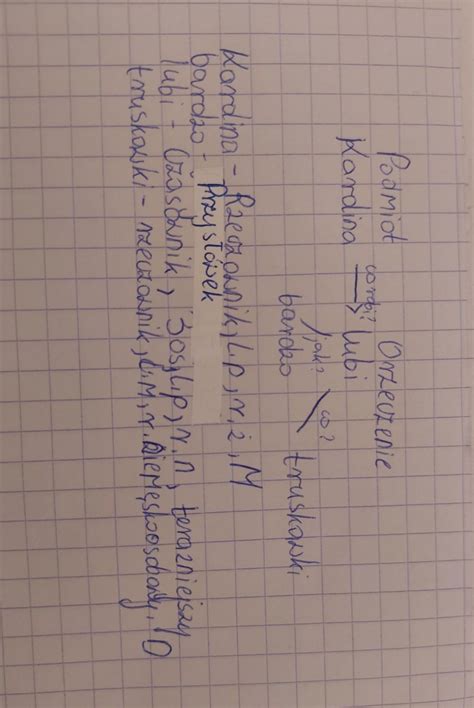 Podmiot Orzeczenie
Kardina co robi? lubi
jak? co?
bardzo truskawki
Kardina - Rzeczownik, l.p, r, ż, M
bardzo - Przysłówek
lubi - Czasownik, 3os, l.p, r.n, teraźniejszy
truskawki - rzeczownik, l.M, r. niemęskoosobowy, D